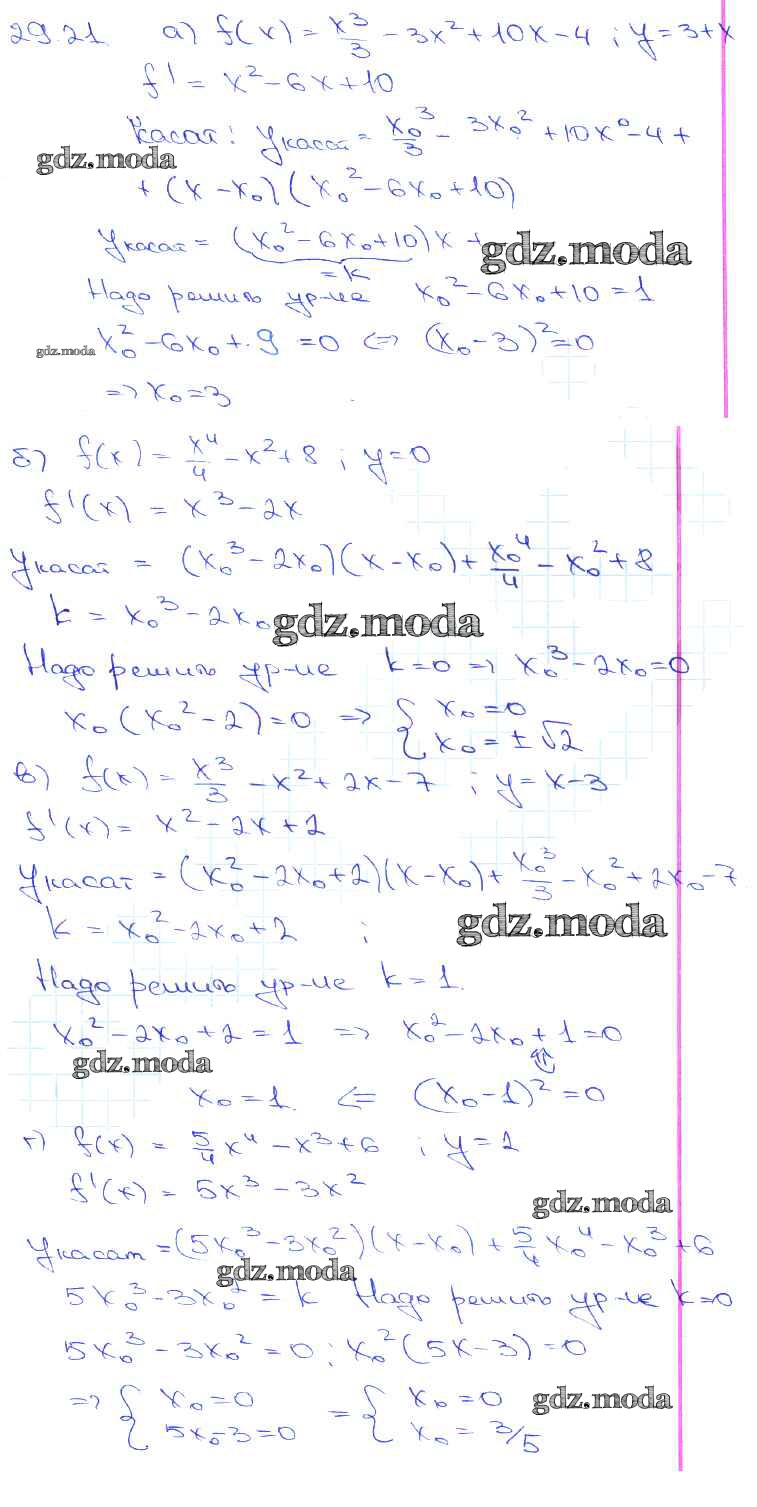 29.21. а) f(x) = x³/3 - 3x² + 10x - 4 ; y = 3+x
f' = x² - 6x + 10
Касат: yкасат = x₀³/3 - 3x₀² + 10x⁰ - 4 +
gdz.moda
+ (x - x₀)(x₀² - 6x₀ + 10)
yкасат = (x₀² - 6x₀ + 10)x +
gdz.moda
= k
Надо решить ур-ие x₀² - 6x₀ + 10 = 1
gdz.moda
x₀² - 6x₀ + 9 = 0 <=> (x₀ - 3)² = 0
=> x₀ = 3
б) f(x) = x⁴/4 - x² + 8 ; y = 0
f'(x) = x³ - 2x
yкасат = (x₀³ - 2x₀)(x - x₀) + x₀⁴/4 - x₀² + 8
k = x₀³ - 2x₀
gdz.moda
Надо решить ур-ие k = 0 => x₀³ - 2x₀ = 0
x₀(x₀² - 2) = 0 => { x₀ = 0
x₀ = ±√2
в) f(x) = x³/3 - x² + 2x - 7 ; y = x - 3
f'(x) = x² - 2x + 2
yкасат = (x₀² - 2x₀ + 2)(x - x₀) + x₀³/3 - x₀² + 2x₀ - 7
k = x₀² - 2x₀ + 2 ;
gdz.moda
Надо решить ур-ие k = 1.
x₀² - 2x₀ + 2 = 1 => x₀² - 2x₀ + 1 = 0
gdz.moda
⇕
x₀ = 1. <= (x₀ - 1)² = 0
г) f(x) = 5/4 x⁴ - x³ + 6 ; y = 2
f'(x) = 5x³ - 3x²
gdz.moda
yкасат = (5x₀³ - 3x₀²)(x - x₀) + 5/4 x₀⁴ - x₀³ + 6
gdz.moda
5x₀³ - 3x₀² = k Надо решить ур-ие k = 0
5x₀³ - 3x₀² = 0 ; x₀²(5x - 3) = 0
=> { x₀ = 0 = { x₀ = 0
gdz.moda
5x₀ - 3 = 0 x₀ = 3/5